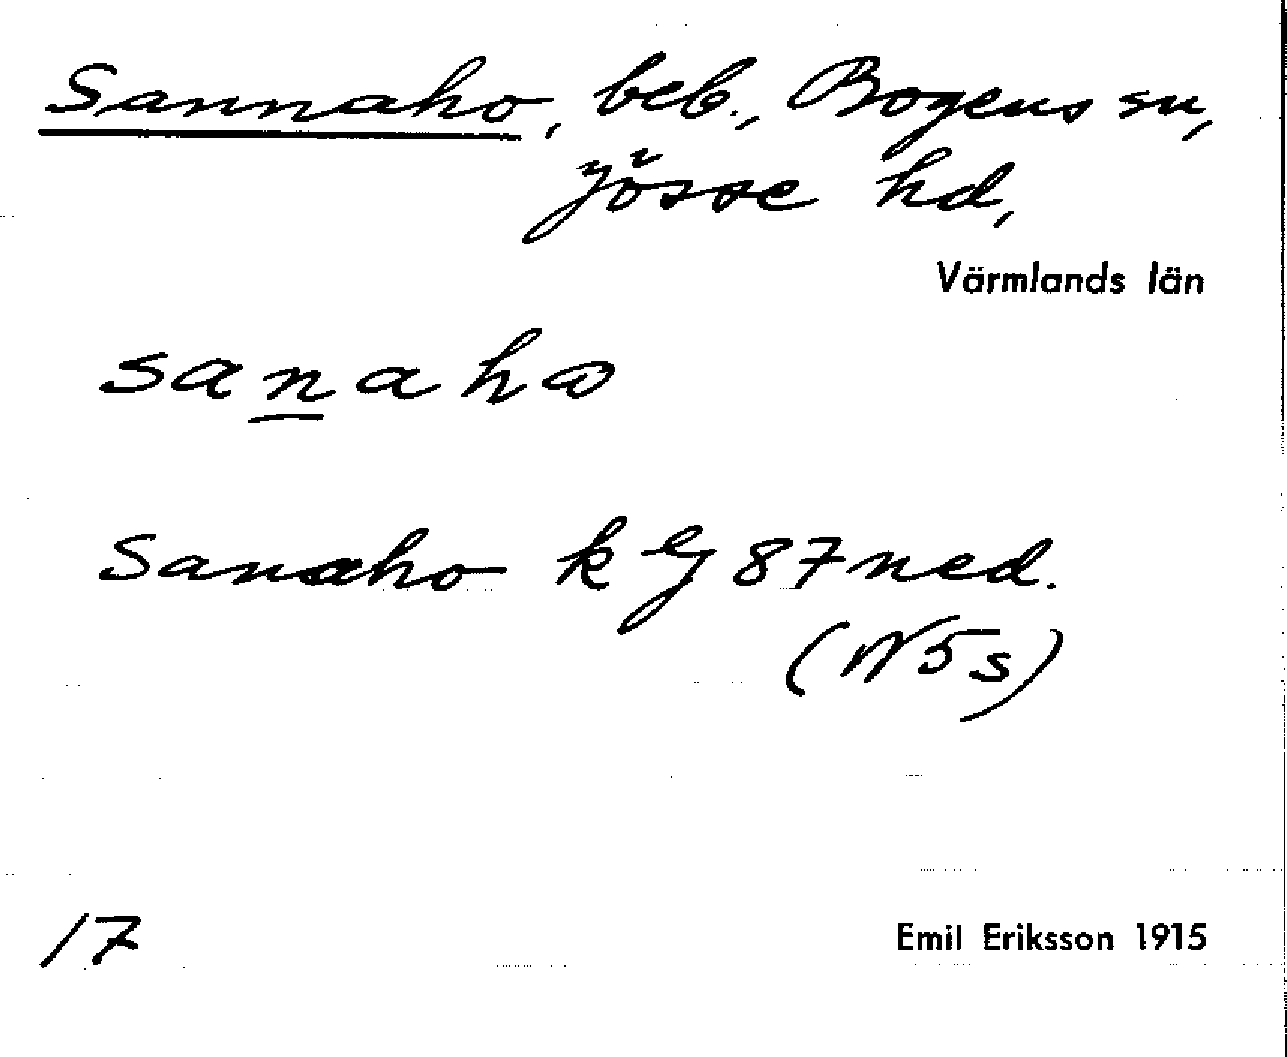 Sannaho, beb., Bogens sn,
Jösse hd,
Värmlands län
sanaho
Sanaho k Ej 87 ned.
(N5s)
17
Emil Eriksson 1915